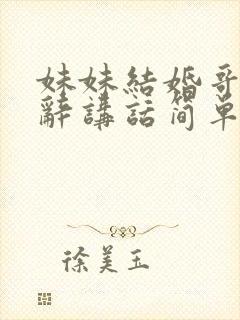 妹妹結婚哥
辭講話简单
徐美玉